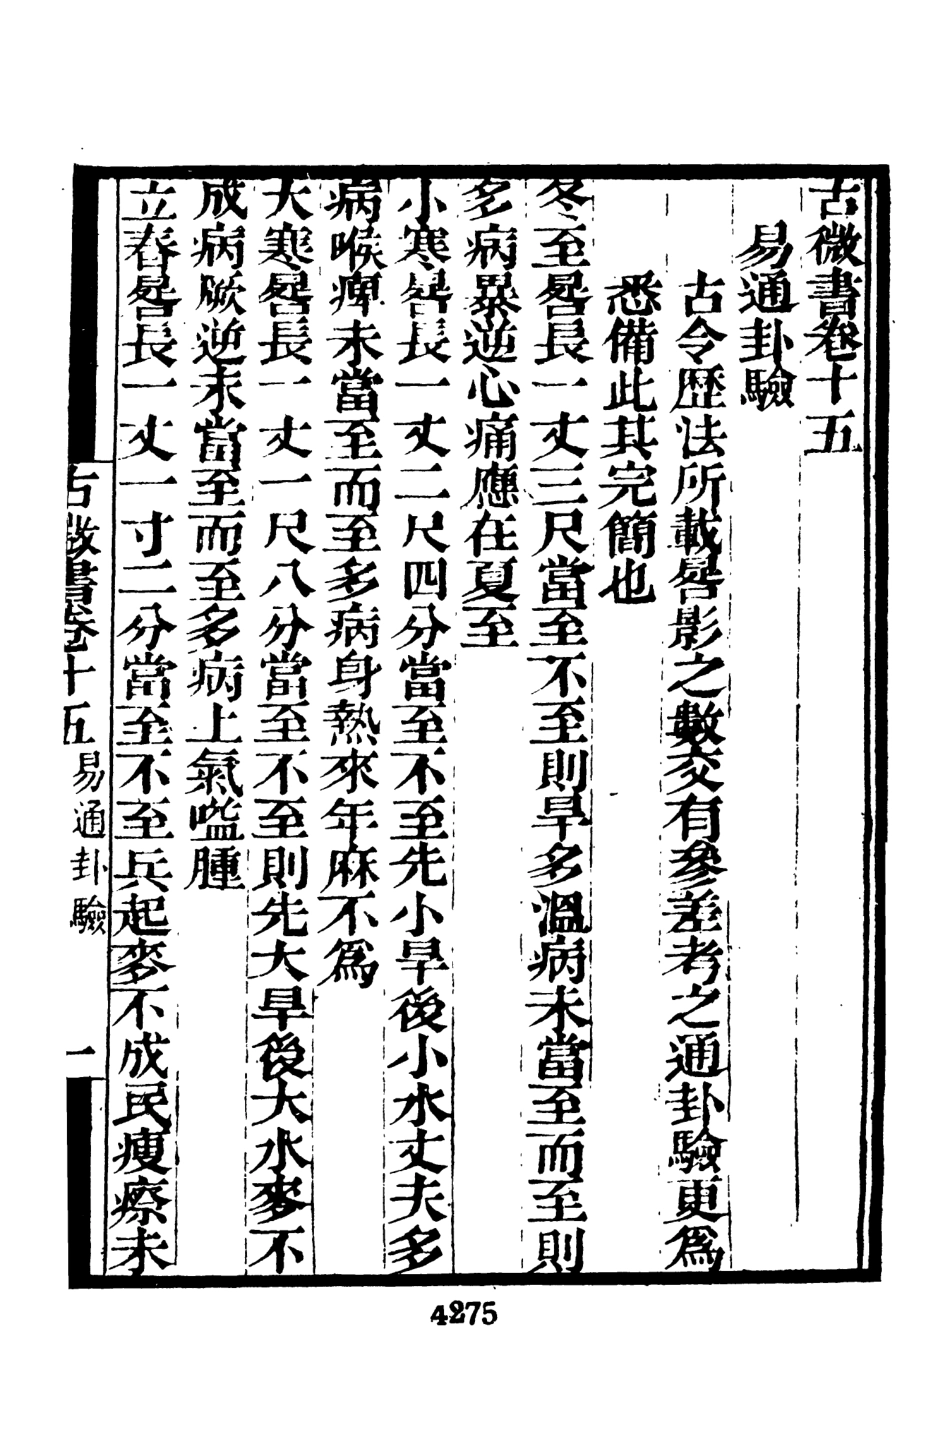 古微書卷十五
易通卦驗
古今歷法所載晷影之數交有參差考之通卦驗更爲
悉備此其完簡也
冬至晷長一丈三尺當至不至則旱多溫病未當至而至則
多病暴逆心痛應在夏至
小寒晷長一丈二尺四分當至不至先小旱後小水丈夫多
病喉痺未當至而至多病身熱來年麻不爲
大寒晷長一丈一尺八分當至不至則先大旱後大水麥不
成病厥逆未當至而至多病上氣嗌腫
立春晷長一丈一寸二分當至不至兵起麥不成民瘦瘵未
古微書卷十五 易通卦驗 一
4275